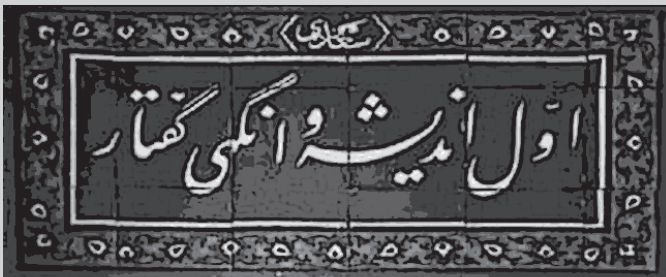 سعدی
اوّل اندیشه وانگهی گفتار